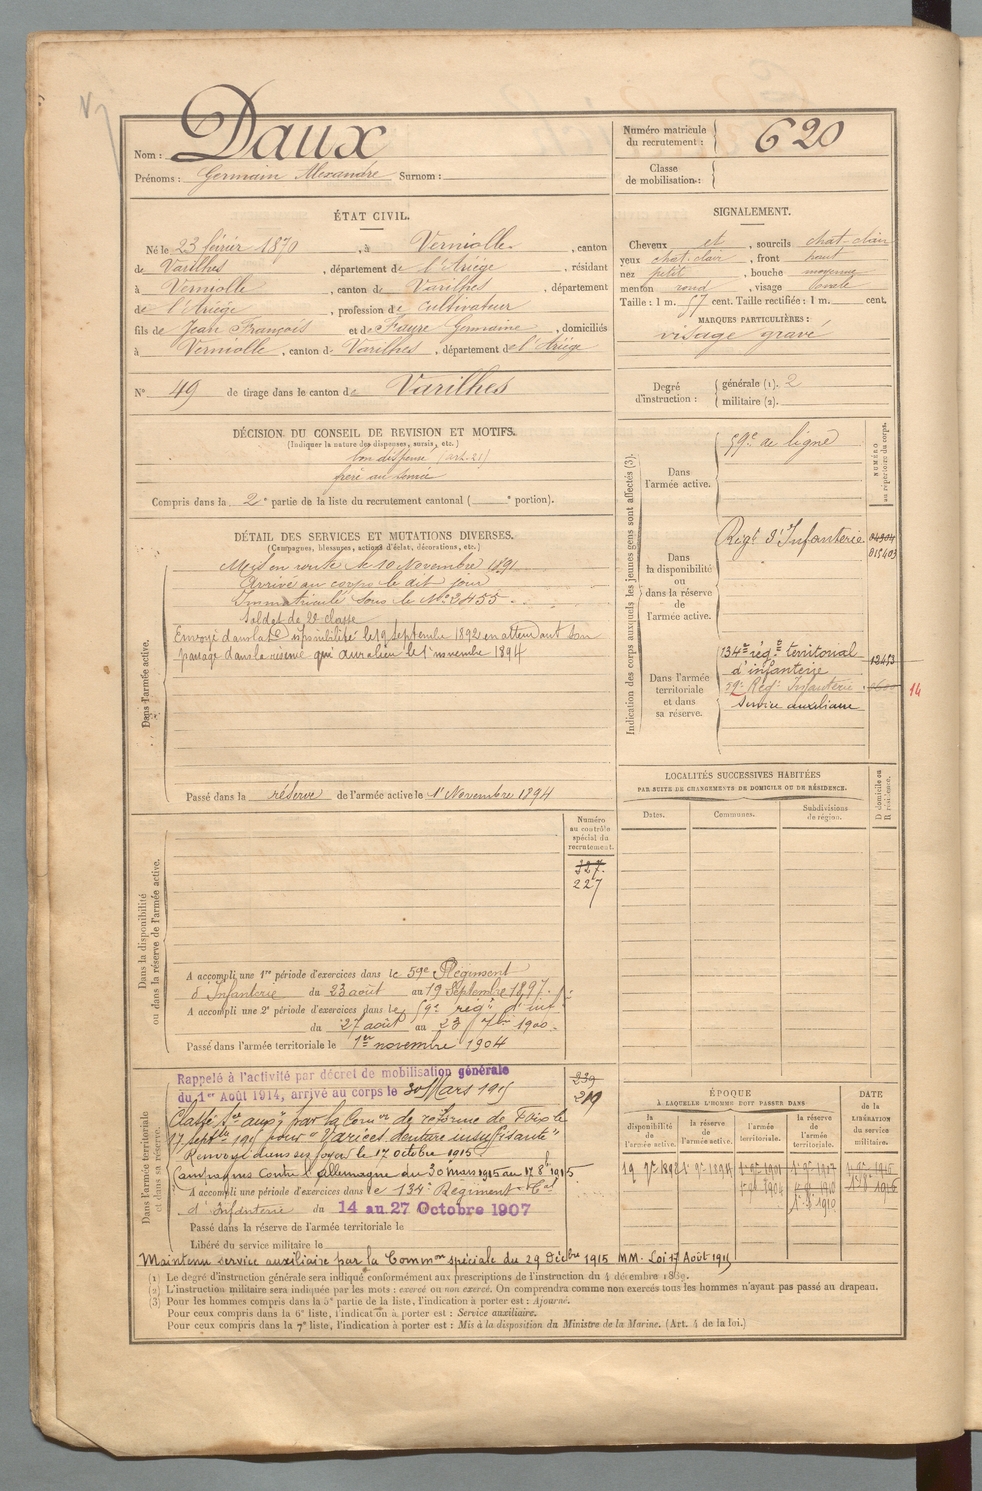 Nom : Daux
Prénoms : Germain Alexandre Surnom :
Numéro matricule du recrutement : 620
Classe de mobilisation :
ÉTAT CIVIL.
Né le 23 février 1870, à Verniolle, canton
de Varilhes, département de l'Ariège, résidant
à Verniolle, canton de Varilhes, département
de l'Ariège, profession de cultivateur
fils de Jean François et de Faure Germaine, domiciliés
à Verniolle, canton de Varilhes, département de l'Ariège
N° 49 de tirage dans le canton de Varilhes
SIGNALEMENT.
Cheveux et, sourcils chat-clair
yeux chat-clair, front haut
nez petit, bouche moyenne
menton rond, visage ovale
Taille : 1 m. 57 cent. Taille rectifiée : 1 m. cent.
MARQUES PARTICULIÈRES :
visage gravé
Degré d'instruction : générale (1). 2
militaire (2).
DÉCISION DU CONSEIL DE REVISION ET MOTIFS.
(Indiquer la nature des dispenses, sursis, etc.)
bon dispensé (art. 21)
frère au service
Compris dans la 2e partie de la liste du recrutement cantonal ( e portion).
DÉTAIL DES SERVICES ET MUTATIONS DIVERSES.
(Campagnes, blessures, actions d'éclat, décorations, etc.)
Dans l'armée active.
Mis en route le 10 Novembre 1891
Arrivé au corps le dit jour
Immatriculé sous le No 2455
Soldat de 2e classe
Envoyé dans la disponibilité le 19 septembre 1892 en attendant son
passage dans la réserve qui aura lieu le 1er novembre 1894
Passé dans la réserve de l'armée active le 1er Novembre 1894
Indication des corps auxquels les jeunes gens sont affectés (3).
NUMÉRO au répertoire du corps.
Dans l'armée active.
59e de ligne
Dans la disponibilité ou dans la réserve de l'armée active.
Régt d'Infanterie
04904
015403
Dans l'armée territoriale et dans sa réserve.
134e rég. territorial
d'infanterie
12453
59e Régt Infanterie
14
Service auxiliaire
LOCALITÉS SUCCESSIVES HABITÉES
PAR SUITE DE CHANGEMENTS DE DOMICILE OU DE RÉSIDENCE.
Dates. Communes. Subdivisions de région.
D domicile ou R résidence.
Numéro au contrôle spécial du recrutement.
327
227
Dans la disponibilité ou dans la réserve de l'armée active.
A accompli une 1re période d'exercices dans le 59e Régiment
d'Infanterie du 23 août au 19 Septembre 1897.
A accompli une 2e période d'exercices dans le 59e régt d'inf
du 27 août au 23 7bre 1900.
Passé dans l'armée territoriale le 1er novembre 1904
Dans l'armée territoriale et dans sa réserve.
Rappelé à l'activité par décret de mobilisation générale
du 1er Août 1914, arrivé au corps le 30 Mars 1915
239
Classé Sce auxre par la Comon de réforme de Foix le
17 septbre 1915 pour "Varices denture insuffisante"
Renvoyé dans ses foyers le 17 octobre 1915
Campagnes Contre l'Allemagne du 30 mars 1915 au 17 8b 1915
A accompli une période d'exercices dans le 134e Régiment tal
d'Infanterie du 14 au 27 Octobre 1907
Passé dans la réserve de l'armée territoriale le
Libéré du service militaire le
Maintenu service auxiliaire par la Common spéciale du 29 Décbre 1915 MM. Loi 17 Août 1915
ÉPOQUE
A LAQUELLE L'HOMME DOIT PASSER DANS
la disponibilité de l'armée active. la réserve de l'armée active. l'armée territoriale. la réserve de l'armée territoriale.
DATE de la LIBÉRATION du service militaire.
19 7bre 1892 1er 9bre 1894
(1) Le degré d'instruction générale sera indiqué conformément aux prescriptions de l'instruction du 4 décembre 1889.
(2) L'instruction militaire sera indiquée par les mots : exercé ou non exercé. On comprendra comme non exercés tous les hommes n'ayant pas passé au drapeau.
(3) Pour les hommes compris dans la 5e partie de la liste, l'indication à porter est : Ajourné.
Pour ceux compris dans la 6e liste, l'indication à porter est : Service auxiliaire.
Pour ceux compris dans la 7e liste, l'indication à porter est : Mis à la disposition du Ministre de la Marine. (Art. 4 de la loi.)